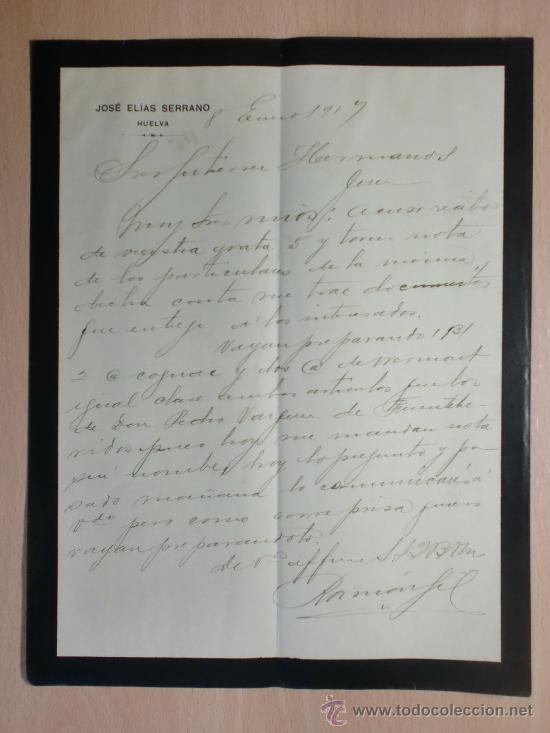 JOSÉ ELÍAS SERRANO
HUELVA
8 Enero 1917
Sres Gutierrez Hermanos
Jerez
Muy Sres mios: acuso recibo
de vuestra grata 5 y tomo nota
de los particulares de la misma
dicha carta me trae documentos
que entregé á los intresados.
Vayan preparando 1 Bl
2 @ cognac y dos @ de Vermout
igual clase ambos articulos que los
de Don Pedro Vazquez de Fuentehe-
ridos pues hoy me mandan nota
sin nombre, hoy lo pregunto y pa-
sado mañana lo comunicaré á
Vdes pero como corre prisa quiero
vayan preparandolo.
de Vs affmo S. S. Q B S M
Ramón Gil
todocoleccion
www.todocoleccion.net